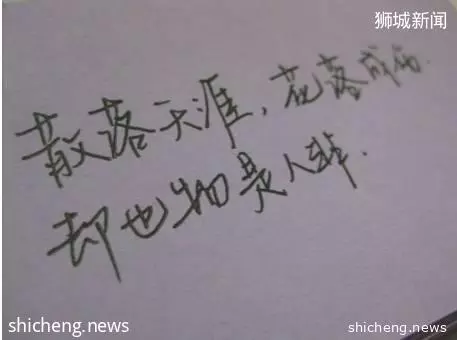 狮城新闻
散落天涯，花落成伤.
却也物是人非.
shicheng.news
shicheng.news